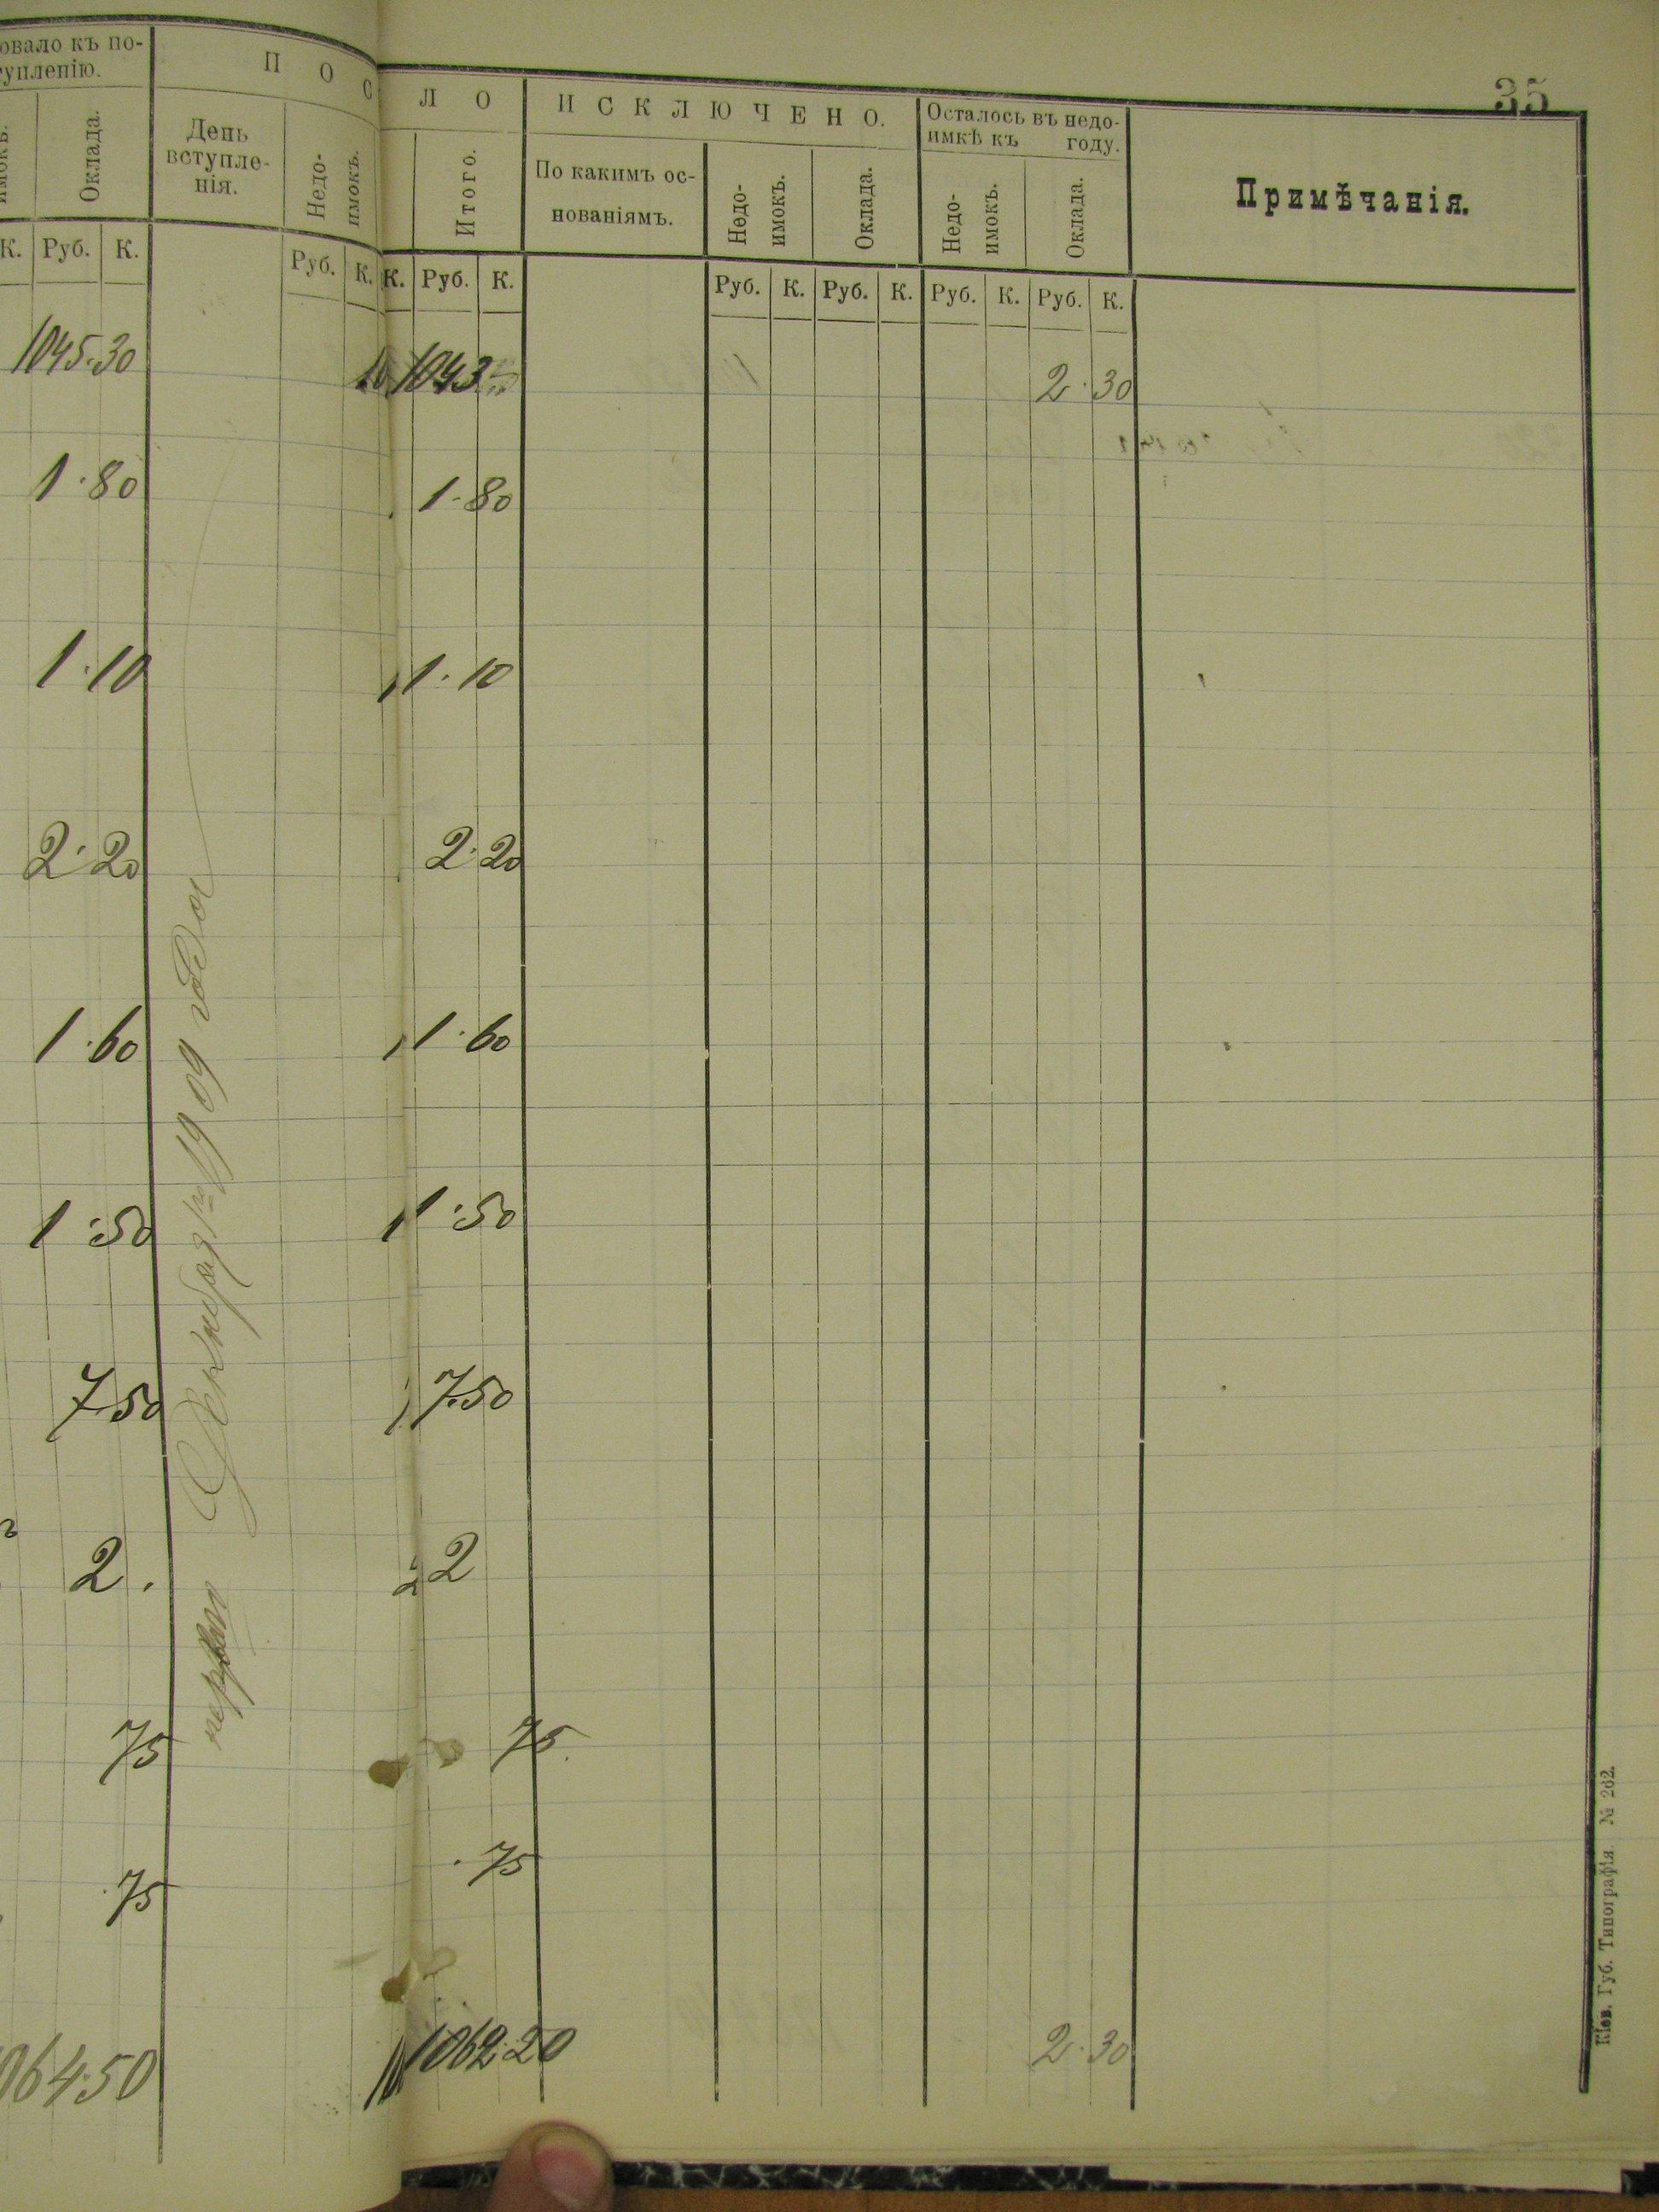 35
овало къ по-
уплению.
П О С
Л О
И С К Л Ю Ч Е Н О.
Осталось въ недо-
имкѣ къ году.
Примѣчанія.
имокъ.
Оклада.
День
вступле-
нія.
Недо-
имокъ.
Итого.
По какимъ ос-
нованіямъ.
Недо-
имокъ.
Оклада.
Недо-
имокъ.
Оклада.
К. Руб. К. Руб. К. К. Руб. К. Руб. К. Руб. К. Руб. К. Руб. К.
1045.30 1043 2.30
1.80 1.80
1.10 1.10
2.20 2.20
1.60 1.60
1.50 1.50
7.50 7.50
2. 2
75 75.
75 75
1909 года
064.50 1062.20 2.30
Кіев. Губ. Типографія № 262.